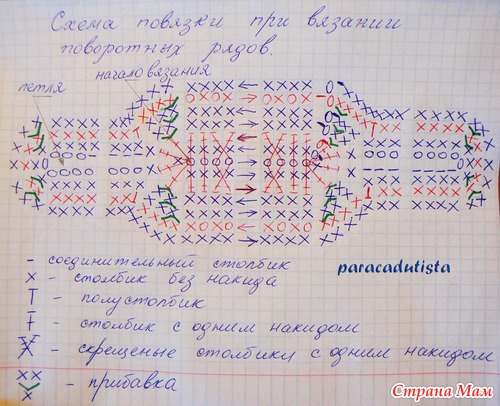 Схема повязки при вязании
поворотных рядов.
начало вязания
петля
- соединительный столбик
paracadutista
х - столбик без накида
- полустолбик
- столбик с одним накидом
- скрещеные столбики с одним накидом
- прибавка
Страна Мам